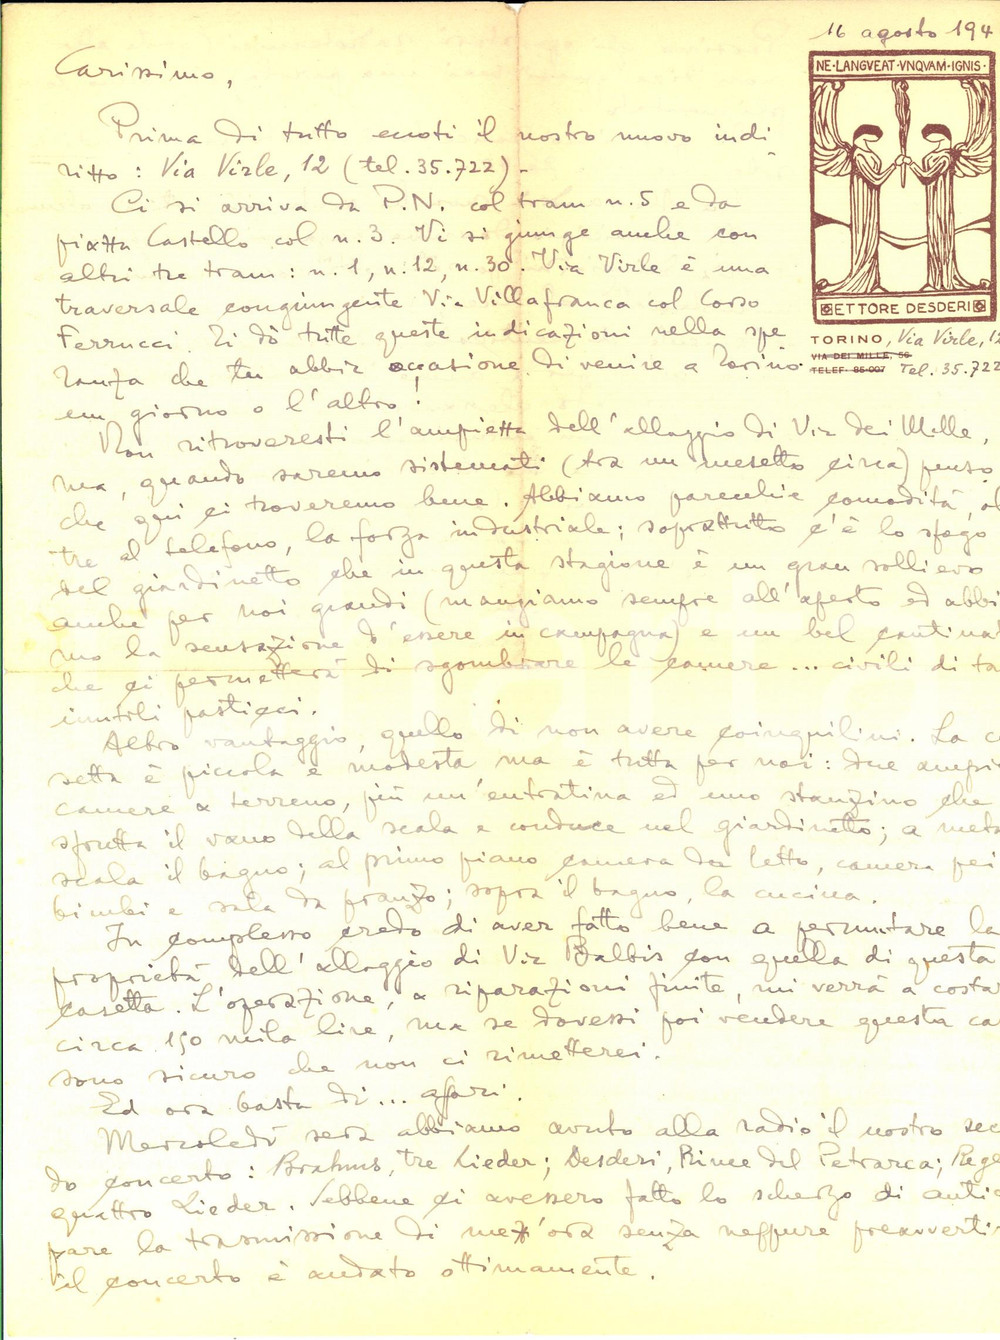 16 agosto 194
NE·LANGVEAT·VNQVAM·IGNIS·
ETTORE DESDERI
TORINO, Via Virle, 12
VIA DEI MILLE, 56
TELEF. 85-007 Tel. 35.722
Carissimo,
Prima di tutto eccoti il nostro nuovo indi-
rizzo: Via Virle, 12 (tel. 35.722)-
Ci si arriva da P.N. col tram n. 5 e da
piazza Castello col n. 3. Vi si giunge anche con
altri tre tram: n. 1, n. 12, n. 30. Via Virle è una
traversale congiungente Via Villafranca col Corso
Ferrucci. Ti dò tutte queste indicazioni nella spe-
ranza che tu abbia occasione di venire a Torino
un giorno o l'altro!
Non ritroveresti l'ampiezza dell'alloggio di Via dei Mille,
ma, quando saremo sistemati (tra un mesetto circa) penso
che qui ci troveremo bene. Abbiamo parecchie comodità, ol
tre al telefono, la forza industriale; soprattutto c'è lo sfogo
del giardinetto che in questa stagione è un gran sollievo
anche per noi grandi (mangiamo sempre all'aperto ed abbi
mo la sensazione d'essere in campagna) e un bel cantina
che ci permetterà di sgombrare le camere... civili di ta
inutili pasticci.
Altro vantaggio, quello di non avere coinquilini. La c
setta è piccola e modesta ma è tutta per noi: due ampie
camere a terreno, più un'entratina ed uno stanzino che
sfrutta il vano della scala e conduce nel giardinetto; a metà
scala il bagno; al primo piano camera da letto, camera pei
bimbi e sala da pranzo; sopra il bagno, la cucina.
In complesso credo di aver fatto bene a permutare la
proprietà dell'alloggio di Via Balbis con quella di questa
casetta. L'operazione, a riparazioni finite, mi verrà a costar
circa 150 mila lire, ma se dovessi poi vendere questa ca
sono sicuro che non ci rimetterei.
Ed ora basta di... affari.
Mercoledì sera abbiamo avuto alla radio il nostro sec
do concerto: Brahms, tre Lieder; Desderi, Rime del Petrarca; Rege
quattro Lieder. Sebbene ci avessero fatto lo scherzo di antic
pare la trasmissione di mezz'ora senza neppure preavverti
il concerto è andato ottimamente.